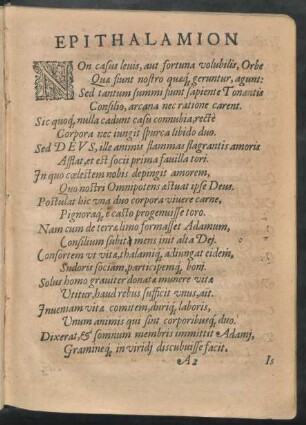 EPITHALAMION
NOn casus leuis, aut fortuna volubilis, Orbe
Qua fiunt nostro quæq; geruntur, agunt:
Sed tantum summi fiunt sapiente Tonantis
Consilio, arcana nec ratione carent.
Sic quoq; nulla cadunt casu connubia, rectè
Corpora nec iungit spurca libido duo.
Sed DEVS, ille animis flammas flagrantis amoris
Afflat, et est socii prima fauilla tori.
In quo cœlestem nobis depingit amorem,
Quo nostri Omnipotens æstuat ipse Deus.
Postulat hic vna duo corpora viuere carne,
Pignoraq; è casto progenuisse toro.
Nam cum de terræ limo formasset Adamum,
Consilium subitò mens init alta Dei.
Consortem vt vitæ, thalamiq; adiungat eidem,
Sudoris sociam, participemq; boni.
Solus homo grauiter donatæ munere vitæ
Vtitur, haud rebus sufficit vnus, ait.
Inueniam vitæ comitem, duriq; laboris,
Vnum animis qui sint corporibusq; duo.
Dixerat, & somnum membris immittit Adami,
Gramineq; in viridi discubuisse facit.
A2 Is